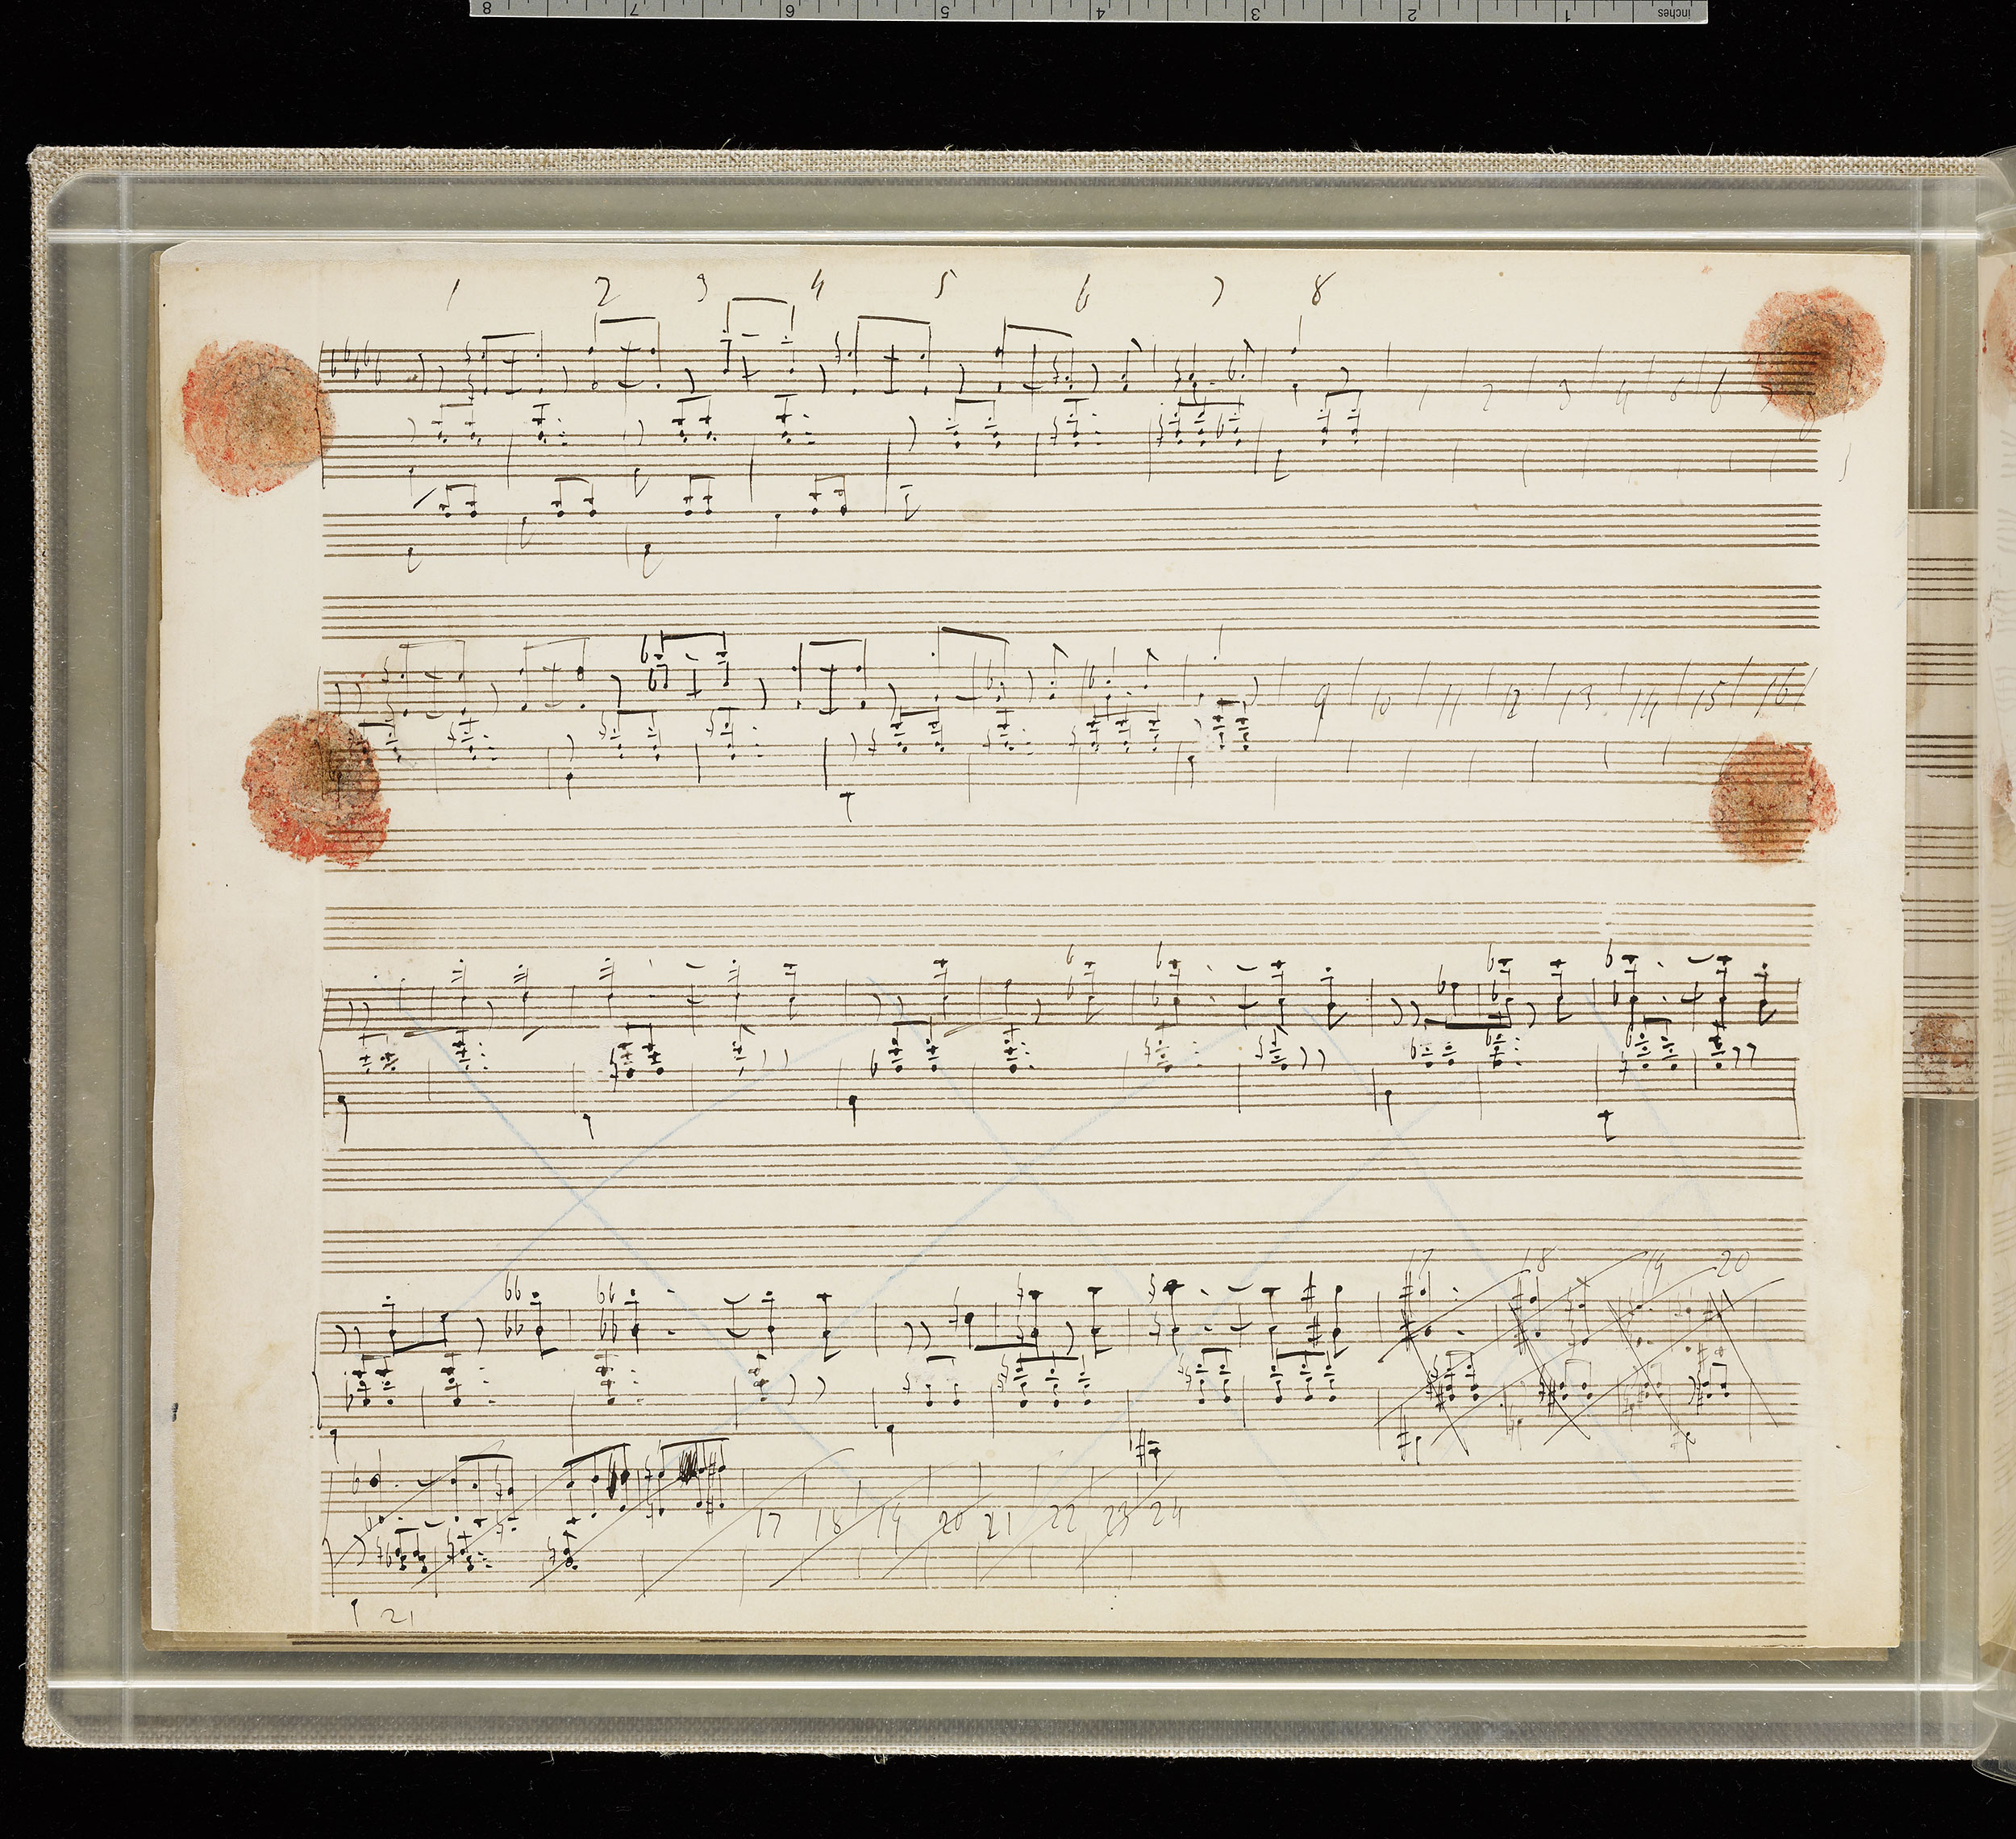 8 7 6 5 4 3 2 1 inches
1 2 3 4 5 6 7 8
1 2 3 4 5 6 7 8
9 10 11 12 13 14 15 16
17 18 19 20
17 18 19 20 21 22 23 24
21